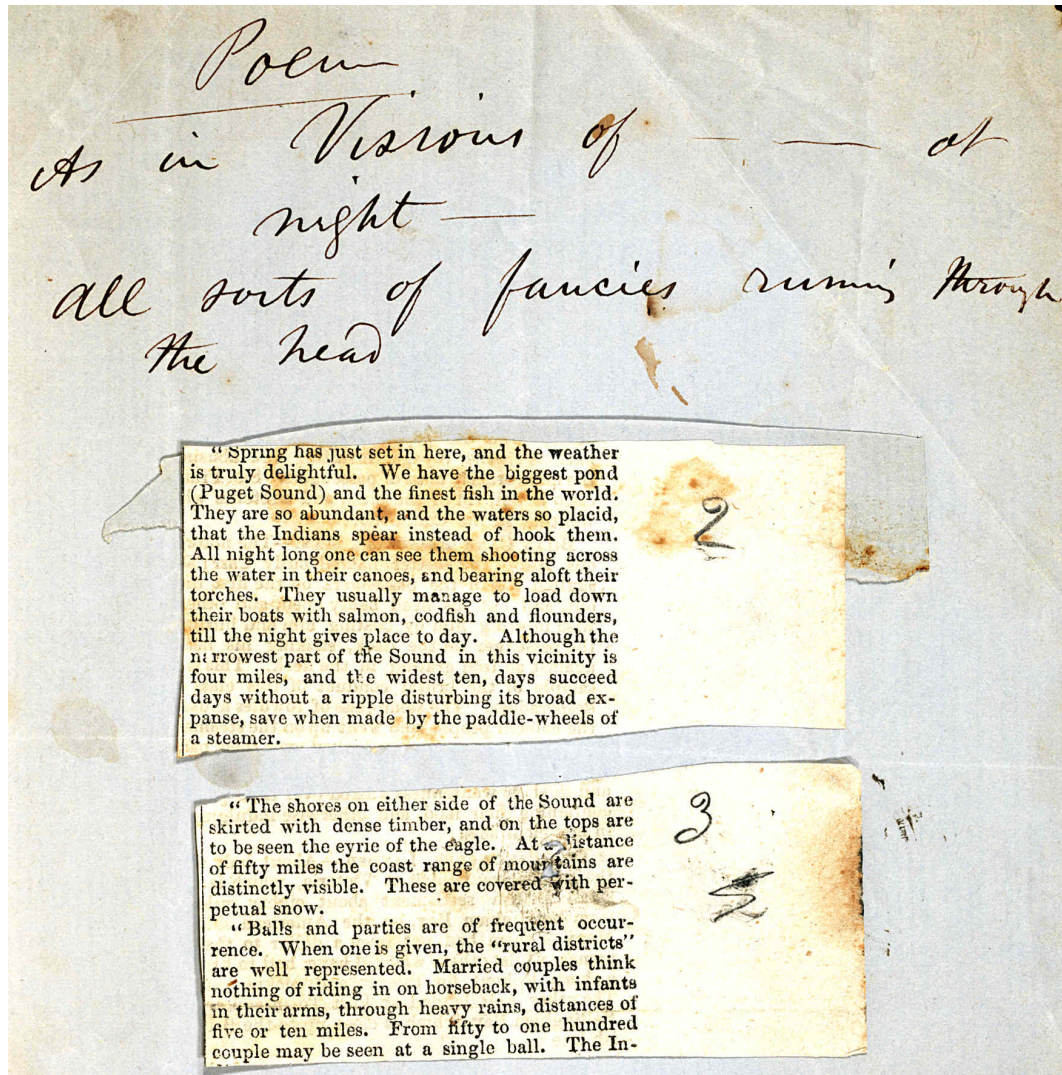 Poem
As in Visions of — — at
night —
All sorts of fancies runing through
the head
"Spring has just set in here, and the weather
is truly delightful. We have the biggest pond
(Puget Sound) and the finest fish in the world.
They are so abundant, and the waters so placid,
that the Indians spear instead of hook them.
All night long one can see them shooting across
the water in their canoes, and bearing aloft their
torches. They usually manage to load down
their boats with salmon, codfish and flounders,
till the night gives place to day. Although the
narrowest part of the Sound in this vicinity is
four miles, and the widest ten, days succeed
days without a ripple disturbing its broad ex-
panse, save when made by the paddle-wheels of
a steamer.
2
"The shores on either side of the Sound are
skirted with dense timber, and on the tops are
to be seen the eyrie of the eagle. At a distance
of fifty miles the coast range of mountains are
distinctly visible. These are covered with per-
petual snow.
"Balls and parties are of frequent occur-
rence. When one is given, the "rural districts"
are well represented. Married couples think
nothing of riding in on horseback, with infants
in their arms, through heavy rains, distances of
five or ten miles. From fifty to one hundred
couple may be seen at a single ball. The In-
3